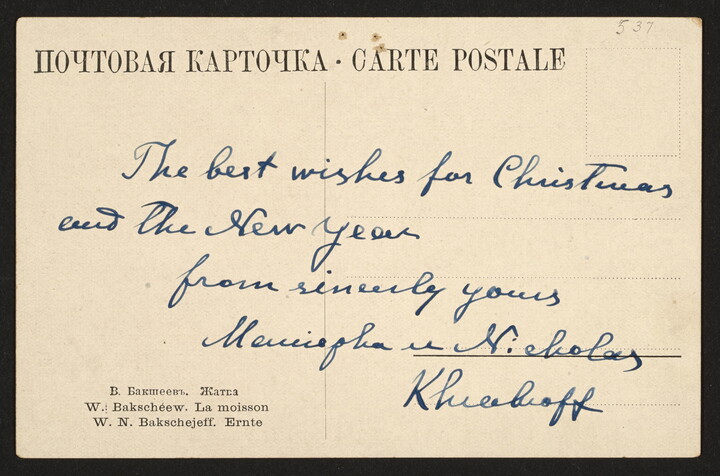 537
ПОЧТОВАЯ КАРТОЧКА · CARTE POSTALE
The best wishes for Christmas
and the New Year
from sincerly yours
и Nicholas
В. Бакшеевъ. Жатва
W. Bakschéew. La moisson
W. N. Bakschejeff. Ernte